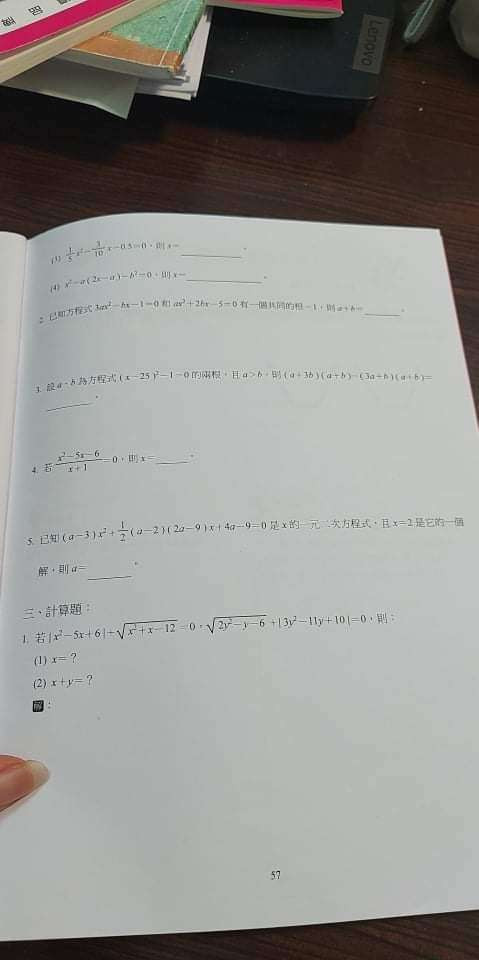 品 牌
Lenovo
(3) \frac{1}{5}x²-\frac{3}{10}x-0.5=0，則 x=________。
(4) x²-a(2x-a)-b²=0，則 x=________。
2. 已知方程式 3ax²-bx-1=0 和 ax²+2bx-5=0 有一個共同的根-1，則 a+b=______。
3. 設 a、b 為方程式 (x-25)²-1=0 的兩根，且 a>b，則 (a+3b)(a+b)-(3a+b)(a+b)=
______。
4. 若 \frac{x²-5x-6}{x+1}=0，則 x=_____。
5. 已知 (a-3)x²+\frac{1}{2}(a-2)(2a-9)x+4a-9=0 是 x 的一元二次方程式，且 x=2 是它的一個
解，則 a=______。
三、計算題：
1. 若 |x²-5x+6|+√(x²+x-12)=0，√(2y²-y-6)+|3y²-11y+10|=0，則：
(1) x=？
(2) x+y=？
解：
57